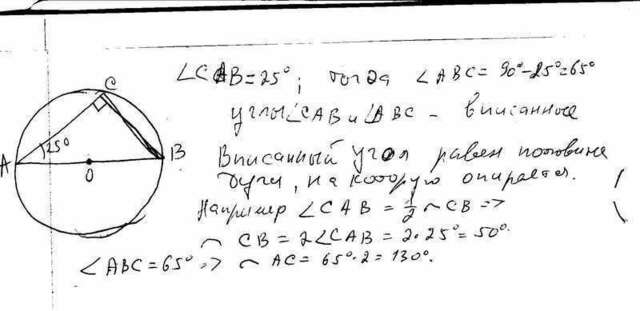 C
A
25°
B
O
∠CAB=25°; тогда ∠ABC=90°-25°=65°
углы ∠CAB и ∠ABC - вписанные
Вписанный угол равен половине
дуги, на которую опирается.
Например ∠CAB = 1/2 ◠CB =>
◠ CB = 2∠CAB = 2·25°=50°.
∠ABC=65° => ◠ AC = 65°·2=130°.